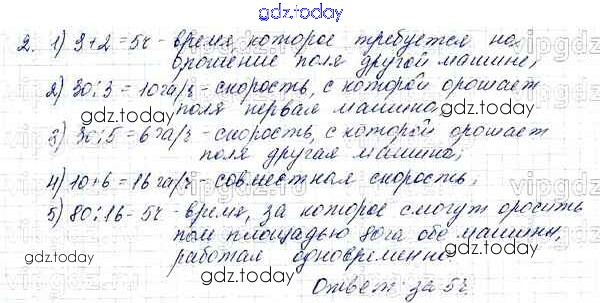 gdz.today
2. 1) 3+2=5ч - время, которое требуется на
орошение поля другой машине;
gdz.today
2) 30:3=10га/ч - скорость, с которой орошает
поля первая машина;
3) 30:5=6га/ч - скорость, с которой орошает
поля другая машина;
4) 10+6=16га/ч - совместная скорость;
5) 80:16-5ч - время, за которое смогут оросить
поле площадью 80га обе машины,
работая одновременно.
gdz.today
gdz.today
Ответ: за 5ч.